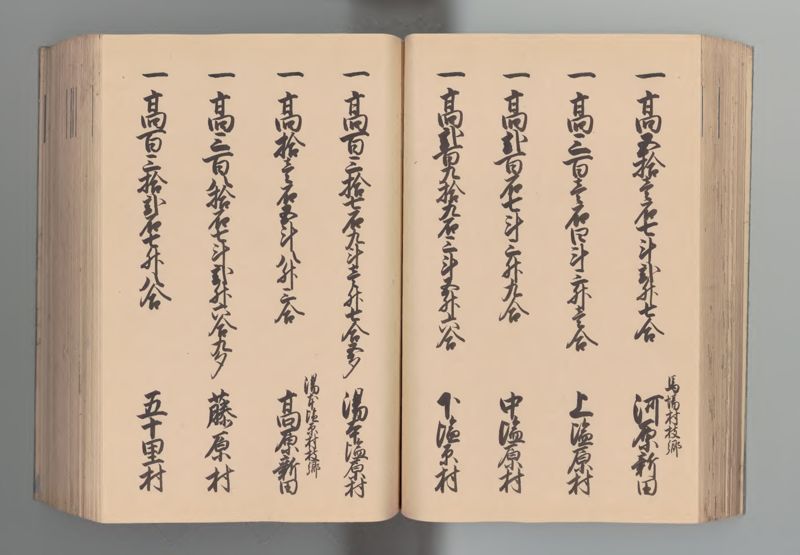 馬場村枝郷
一 高五拾壱石七斗弐升七合 河原新田
一 高三百壱石四斗三升壱合 上塩原村
一 高弐百石七斗三升九合 中塩原村
一 高弐百九拾九石三斗五升六合 下塩原村
一 高百三拾七石九斗壱升七合五夕 湯本塩原村
湯本塩原村枝郷
一 高拾壱石五斗八升二合 高原新田
一 高三百八拾石七斗弐升六合九夕 藤原村
一 高百三拾弐石七升八合 五十里村